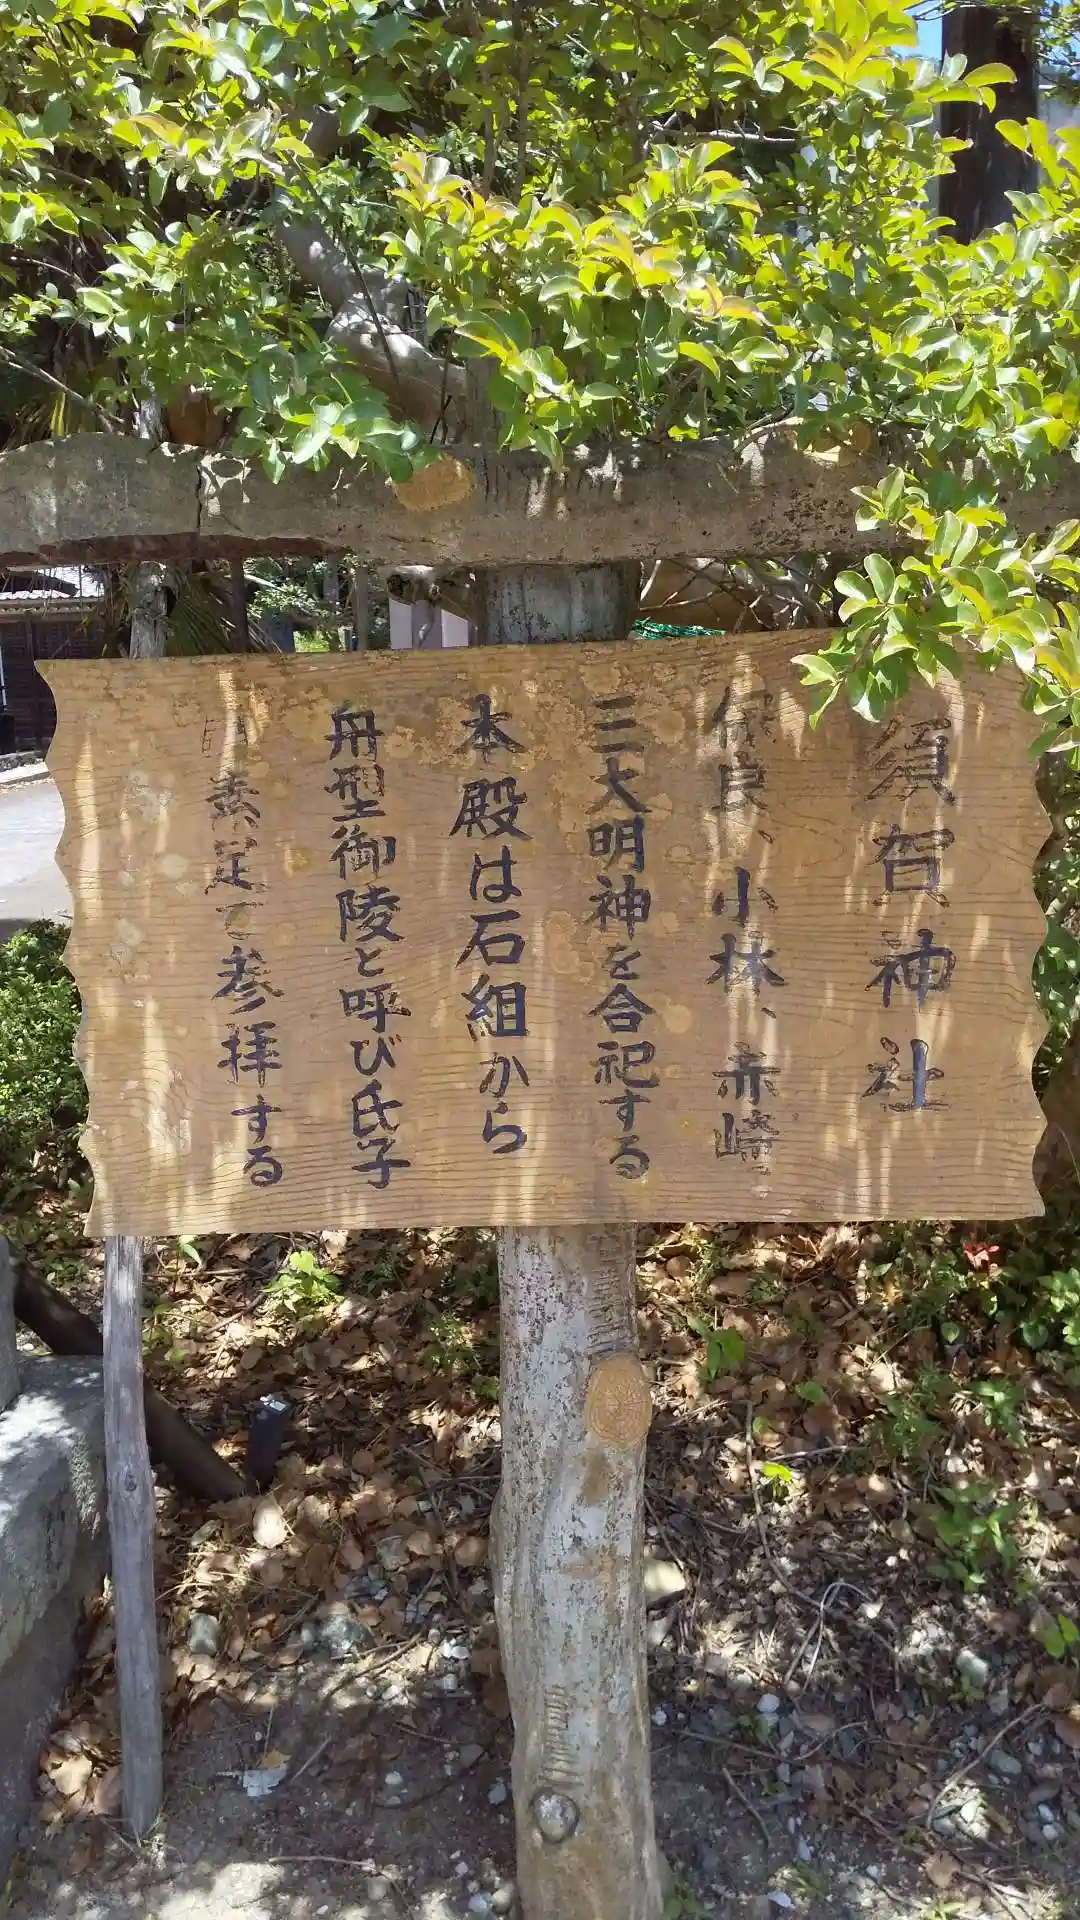 須賀神社
保良、小林、赤崎
三大明神を合祀する
本殿は石組から
舟型御陵と呼び氏子
素足で参拝する